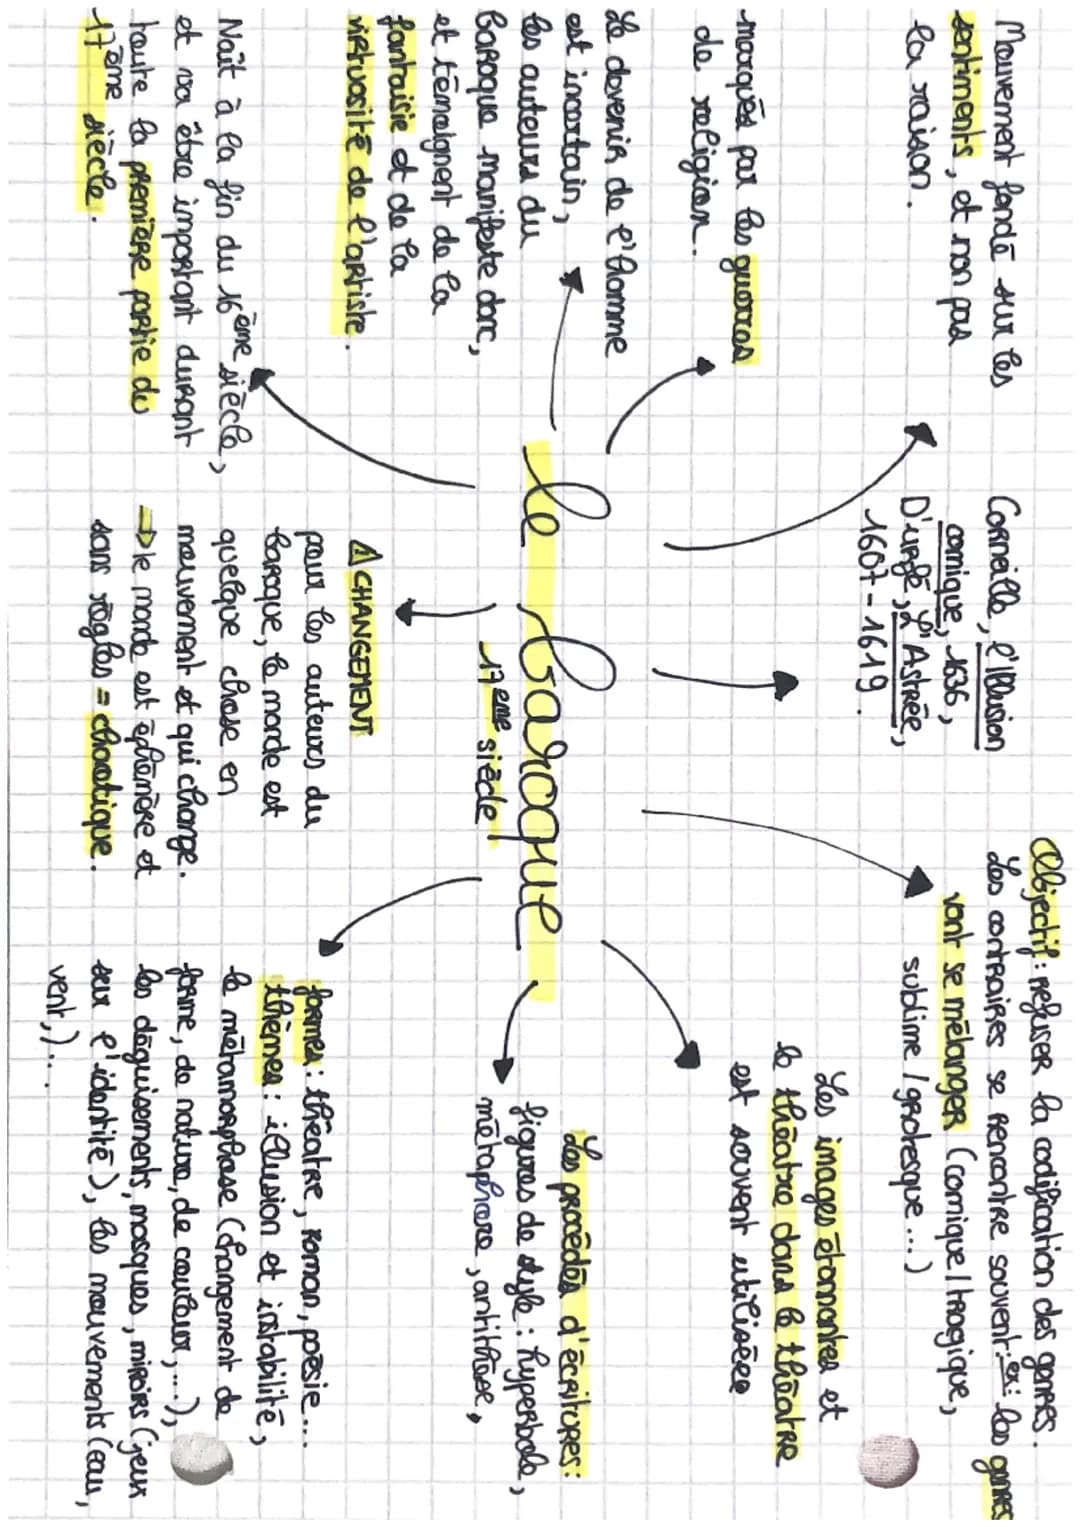 Mouvement fondé sur les
sentiments, et non pas
la raison.
Corneille, l'Illusion
comique, 1636,
D'urfé, L'Astrée,
1607-1619.
Objectif : refuser la codification des genres.
Les contraires se rencontre souvent : ex : les genres
vont se mélanger (comique/tragique,
sublime/grotesque...)
marqués par les guerres
de religion.
Les images étonnantes et
le théâtre dans le théâtre
est souvent utilisées
Le devenir de l'homme
est incertain,
les auteurs du
baroque manifeste donc,
et témoignent de la
fantaisie et de la
virtuosité de l'artiste.
Le baroque
17ème siècle
Les procédés d'écritures :
figures de style : hyperbole,
métaphore, antithèse,
Naît à la fin du 16ème siècle,
et va être important durant
toute la première partie du
17ème siècle.
⚠ CHANGEMENT
pour les auteurs du
baroque, le monde est
quelque chose en
mouvement et qui change.
→ le monde est éphémère et
sans règles = chaotique.
formes : théatre, roman, poésie...
thèmes : illusion et instabilité,
la métamorphose (changement de
forme, de nature, de couleur,...),
les déguisements, masques, miroirs (jeux
sur l'identité), les mouvements (eau,
vent,)...